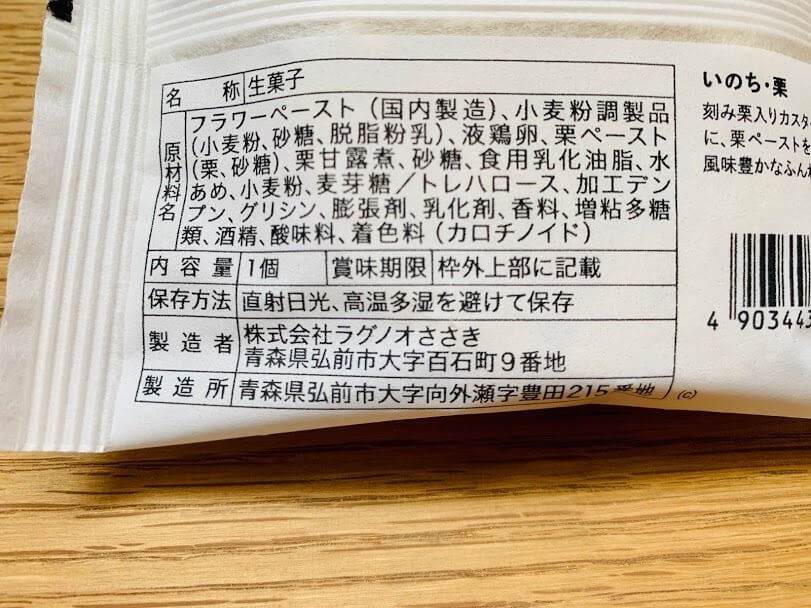 名称 生菓子
原材料名
フラワーペースト（国内製造）、小麦粉調製品
（小麦粉、砂糖、脱脂粉乳）、液鶏卵、栗ペースト
（栗、砂糖）、栗甘露煮、砂糖、食用乳化油脂、水
あめ、小麦粉、麦芽糖／トレハロース、加工デン
プン、グリシン、膨張剤、乳化剤、香料、増粘多糖
類、酒精、酸味料、着色料（カロチノイド）
内容量 1個 賞味期限 枠外上部に記載
保存方法 直射日光、高温多湿を避けて保存
製造者 株式会社ラグノオささき
青森県弘前市大字百石町9番地
製造所 青森県弘前市大字向外瀬字豊田215番地
(c)
いのち・栗
刻み栗入りカスタ
に、栗ペーストを
風味豊かなふん
4 903443